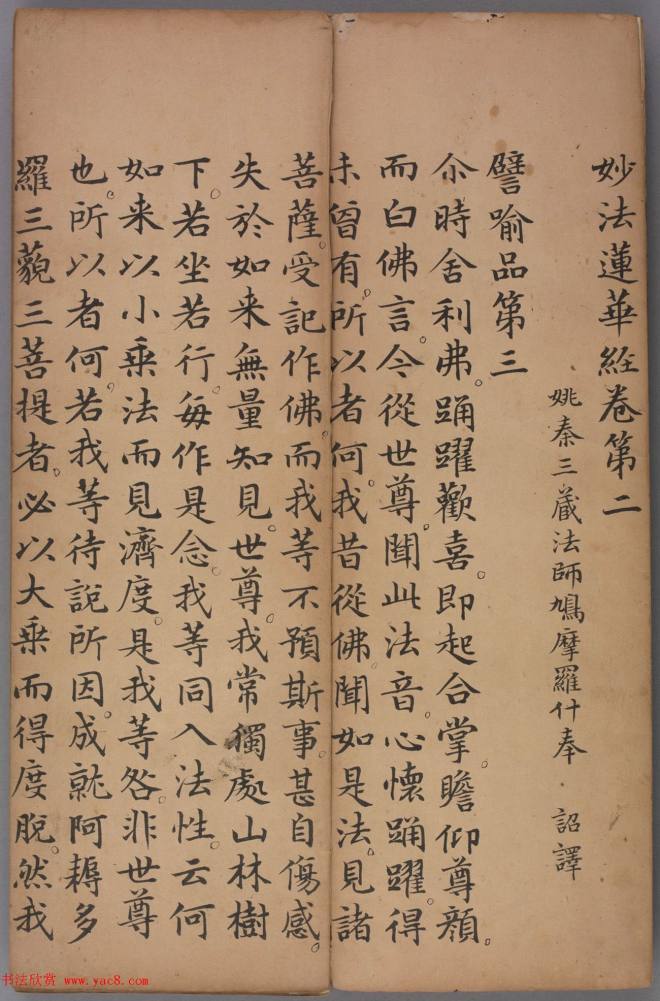 妙法蓮華經卷第二
姚秦三藏法師鳩摩羅什奉 詔譯
譬喻品第三
尒時舍利弗。踊躍歡喜。即起合掌。瞻仰尊顏。
而白佛言。今從世尊。聞此法音。心懷踊躍。得
未曾有。所以者何。我昔從佛。聞如是法。見諸
菩薩。受記作佛。而我等不預斯事。甚自傷感。
失於如来無量知見。世尊。我常獨處山林樹
下。若坐若行。每作是念。我等同入法性。云何
如来以小乘法而見濟度。是我等咎。非世尊
也。所以者何。若我等待說所因。成就阿耨多
羅三藐三菩提者。必以大乘而得度脫。然我
书法欣赏 www.yac8.com